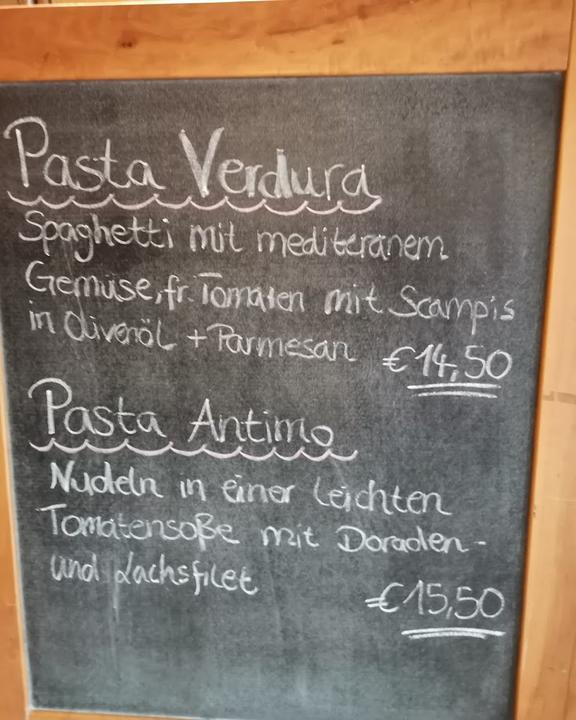 Pasta Verdura
Spaghetti mit mediteranem
Gemüse, fr. Tomaten mit Scampis
in Olivenöl + Parmesan €14,50
Pasta Antimo
Nudeln in einer leichten
Tomatensoße mit Doraden-
und Lachsfilet
€15,50